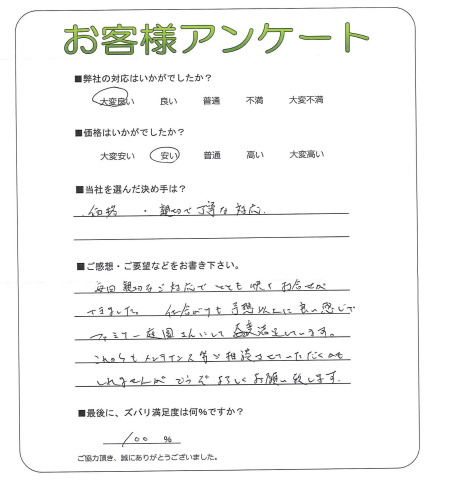 お客様アンケート
■弊社の対応はいかがでしたか？
大変良い 良い 普通 不満 大変不満
■価格はいかがでしたか？
大変安い 安い 普通 高い 大変高い
■当社を選んだ決め手は？
・価格 ・親切で丁寧な対応．
■ご感想・ご要望などをお書き下さい。
毎回親切なご対応でとても快くお任せが
できました。仕上がりも予想以上に良い感じで
ファミリー庭園さんにして 満足しています。
これからもメンテナンス等ご相談させていただくかも
しれませんが どうぞよろしくお願い致します．
■最後に、ズバリ満足度は何％ですか？
100 ％
ご協力頂き、誠にありがとうございました。